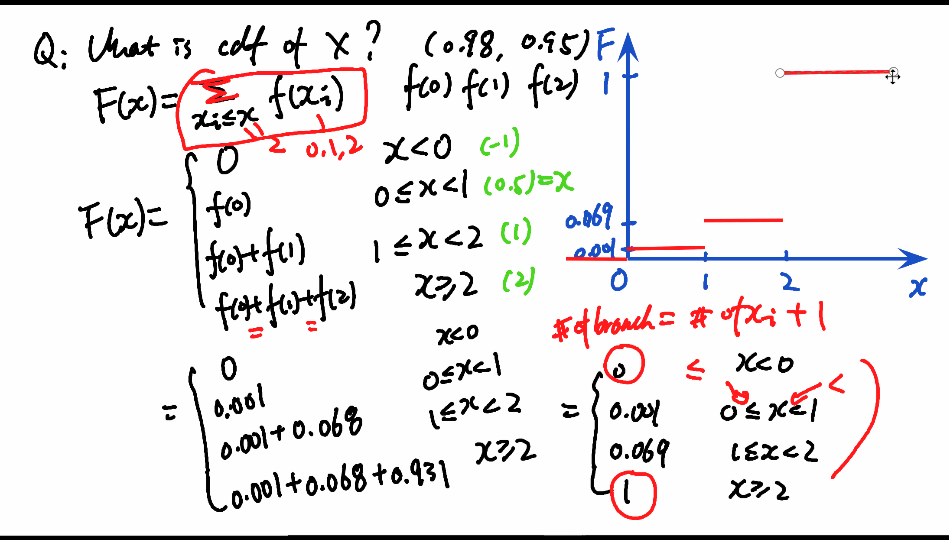 Q: What is cdf of X? (0.98, 0.95)
F(x) = Σ xi≤x f(xi) f(0) f(1) f(2)
2 0,1,2
F(x) =
0 x<0 (-1)
f(0) 0≤x<1 (0.5)=x
f(0)+f(1) 1≤x<2 (1)
f(0)+f(1)+f(2) x≥2 (2)
=
0 x<0
0.001 0≤x<1
0.001+0.068 1≤x<2
0.001+0.068+0.931 x≥2
F
1
0.069
0.001
0 1 2 x
# of branch = # of xi + 1
=
0 ≤ x<0
0.001 0≤x<1 <
0.069 1≤x<2
1 x≥2